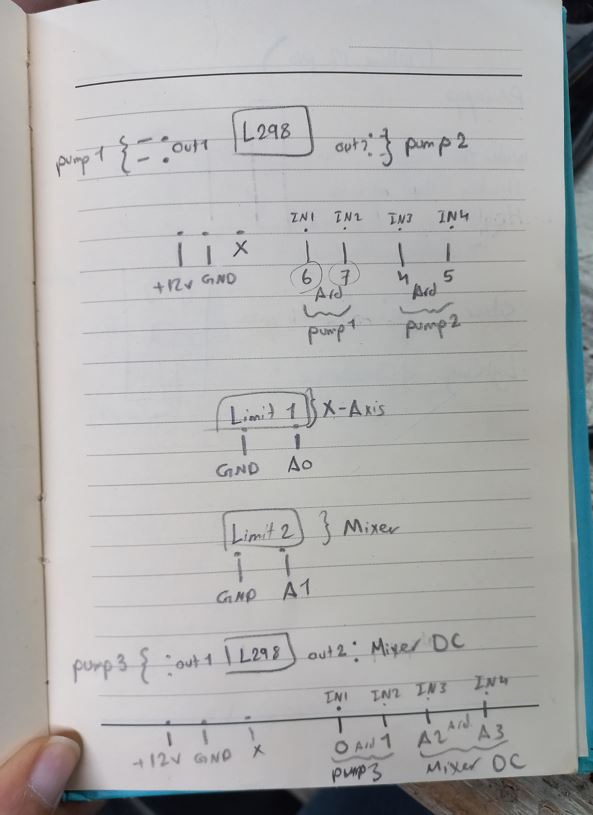 pump 1 { out1 L298 out2 } pump 2
IN1 IN2 IN3 IN4
+12v GND X 6 7 4 5
Ard Ard
pump 1 pump 2
Limit 1 } X-Axis
GND A0
Limit 2 } Mixer
GND A1
pump 3 { : out1 L298 out2 : Mixer DC
IN1 IN2 IN3 IN4
+12V GND X 0 Ard 1 A2 Ard A3
pump 3 Mixer DC